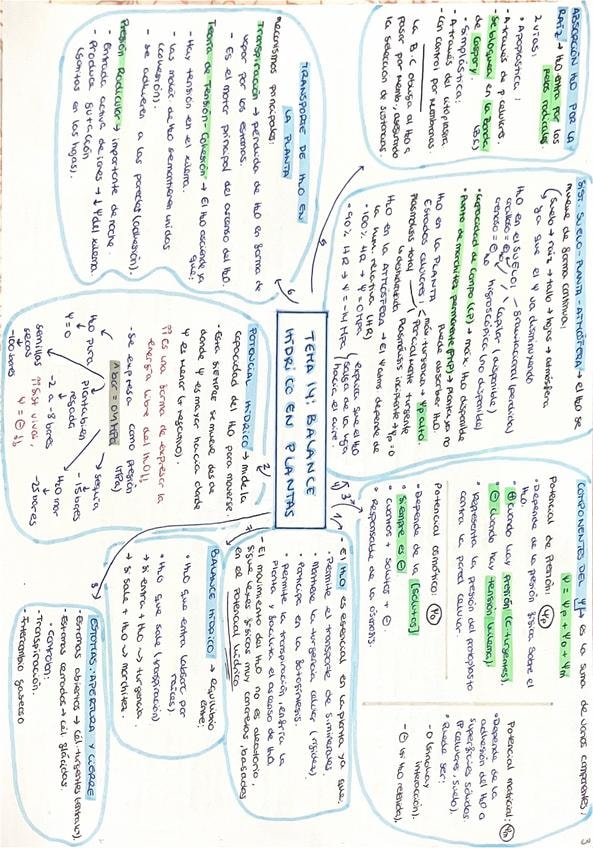 TEMA 14: BALANCE
HÍDRICO EN PLANTAS
- El H₂O es esencial en la planta ya que:
• Permite el transporte de minerales
• Mantiene la turgencia celular (rigidez)
• Participa en la fotosíntesis.
• Permite la transpiración, enfría la
planta y facilita el ascenso de H₂O
- El movimiento del H₂O no es aleatorio,
sigue leyes físicas muy concretas, basadas
en el potencial hídrico
POTENCIAL HÍDRICO → mide la
capacidad del H₂O para moverse.
- Ésta siempre se mueve desde
donde Ψ es mayor hacia donde
Ψ es menor (+ negativo).
!! Es una forma de expresar la
energía libre del H₂O !!
- Se expresa como presión
(MPa)
1 bar = 0'1 MPa
H₂O pura
Ψ = 0
Planta bien
regada
-2 a -8 bares
Sequía
-15 bares
H₂O mar
-25 bares
Semillas
secas
-100 bares
Ψ = ⊖
COMPONENTES DEL Ψ → es la suma de varios componentes:
Ψ = Ψp + Ψo + Ψm
Potencial de presión: Ψp
• Depende de la presión física sobre el
H₂O.
- ⊕ cuando hay presión (c. turgentes).
- ⊖ cuando hay tensión (xilema).
• Representa la presión del protoplasto
contra la pared celular.
Potencial osmótico: Ψo
• Depende de la [solutos]
• Siempre es ⊖
• Cuantos + solutos + ⊖
• Responsable de la ósmosis.
Potencial matricial: Ψm
• Depende de la
adhesión del H₂O a
superficies sólidas
(P. celulares, suelo).
• Puede ser:
- 0 (si no hay
interacción).
- ⊖ (si H₂O retenida).
SIST. SUELO-PLANTA-ATMÓSFERA → el H₂O se
mueve de forma continua:
(suelo → raíz → tallo → hojas → atmósfera
ya que el Ψ va disminuyendo
H₂O en el SUELO:
- gravitacional (perdida)
- capilar (disponible)
- H₂O higroscópica (no disponible)
• Capacidad de campo (CP) → máx. H₂O disponible
• Punto de marchitez permanente (PMP) → planta ya no
puede absorber H₂O
H₂O en la PLANTA
Estados celulares:
Máx. turgencia → Ψp alto
Parcialmente turgente
Plasmólisis incipiente → Ψp = 0
Plasmólisis total
↳ deshidratada
H₂O en la ATMÓSFERA → el Ψ atmós. depende de
la hum. relativa (HR)
• 100% HR → Ψ = 0 MPa
• 90% HR → Ψ = -14 MPa
explica que el H₂O
salga de la hoja
hacia el aire.
ABSORCIÓN H₂O POR LA
RAÍZ → H₂O entra por los
pelos radicales
2 vías:
• Apoplástica:
- A través de P. celulares.
- Se bloquea en la Banda
de Caspary.
• Simplástica:
- A través del citoplasma
- Con control por membranas
La B.C obliga al H₂O a
pasar por memb, asegurando
la selección de sustancias.
TRANSPORTE DE H₂O EN
LA PLANTA
Mecanismos principales:
Transpiración → pérdida de H₂O en forma de
vapor por los estomas.
- Es el motor principal del ascenso del H₂O.
Teoría de Tensión-Cohesión → El H₂O asciende ya
que:
- Hay tensión en el xilema.
- Las moléc. de H₂O se mantienen unidas
(cohesión).
- Se adhieren a las paredes (adhesión).
Presión Radicular → importante de noche.
- Entrada activa de iones → ↓ Ψ del xilema.
- Produce gutación
(gotitas en las hojas).
BALANCE HÍDRICO → equilibrio
entre:
• H₂O que entra (absor. por
raíces).
• H₂O que sale (transpiración)
→ Si entra + H₂O → turgencia.
→ Si sale + H₂O → marchitez.
ESTOMAS: APERTURA Y CIERRE
- Estomas abiertos → cél. turgentes
- Estomas cerrados → cél. flácidas.
• Controlan:
- Transpiración.
- Intercambio gaseoso